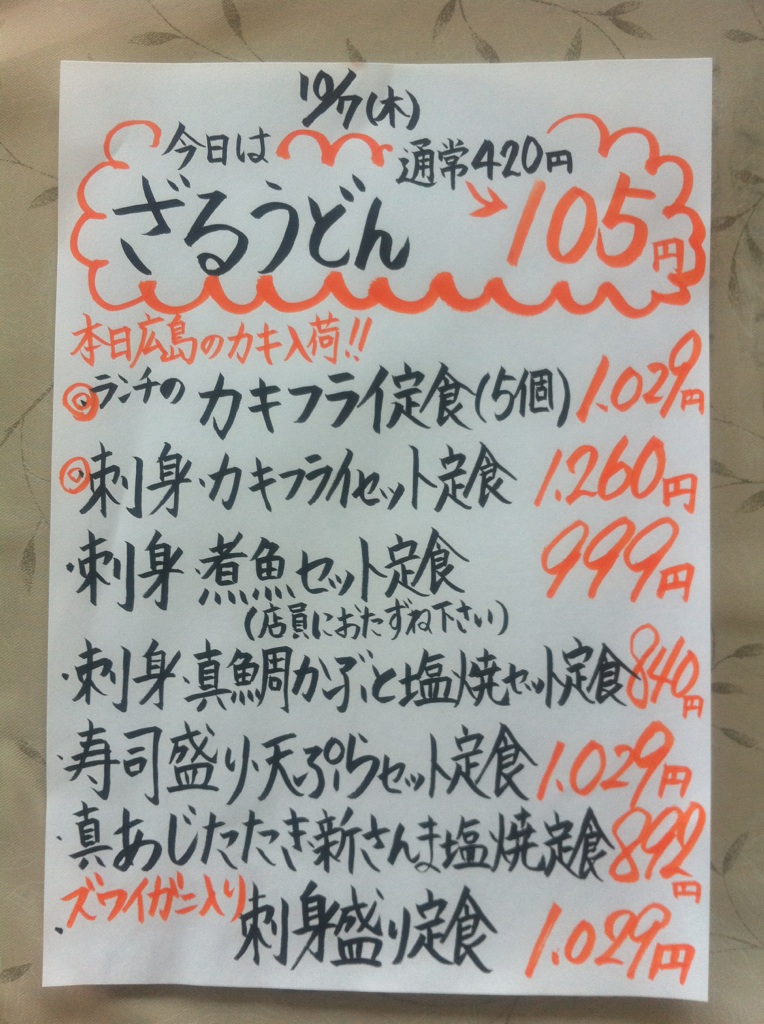 10/7(木)
今日は
通常420円
ざるうどん → 105円
本日広島のカキ入荷!!
◎ランチのカキフライ定食(5個) 1.029円
◎刺身・カキフライセット定食 1.260円
・刺身・煮魚セット定食 999円
(店員におたずね下さい)
・刺身・真鯛かぶと塩焼セット定食 840円
・寿司盛り・天ぷらセット定食 1.029円
・真あじたたき新さんま塩焼定食 892円
ズワイガニ入り
・刺身盛り定食 1.029円